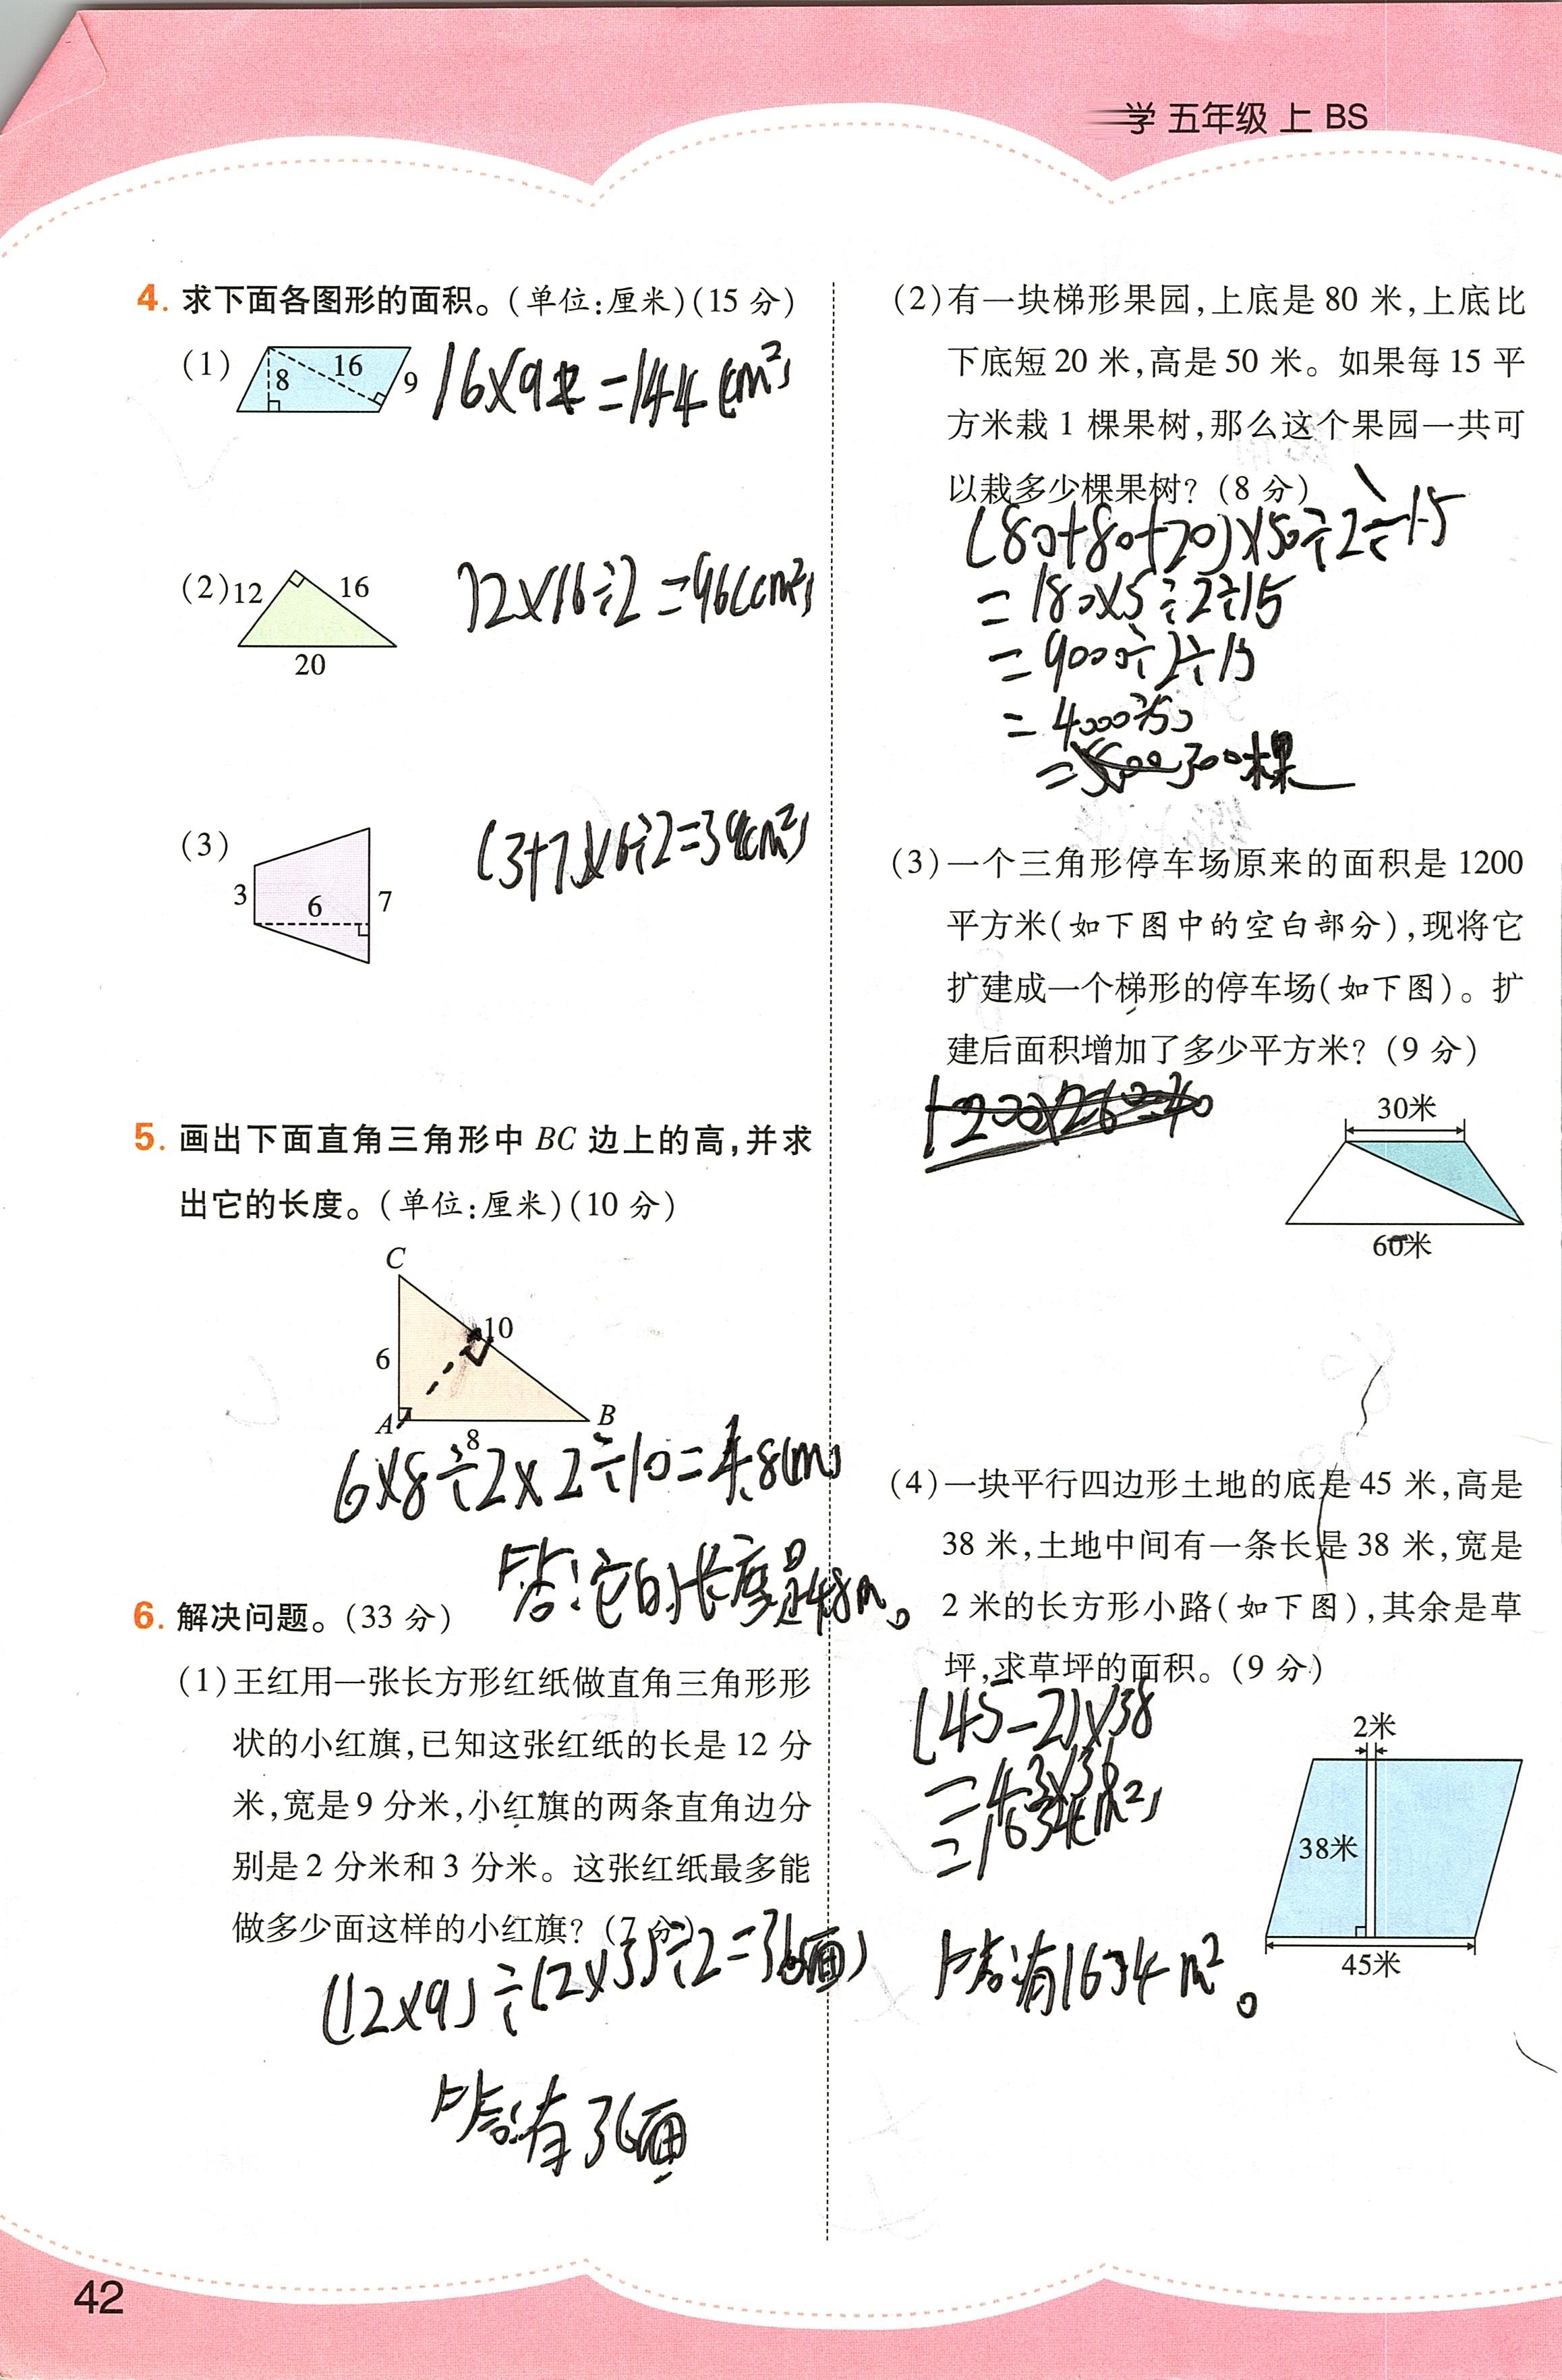 学 五年级 上 BS
4. 求下面各图形的面积。(单位:厘米)(15 分)
(1) 8 16 9
16×9 =144(cm²)
(2) 12 16 20
12×16÷2 =96(cm²)
(3) 3 6 7
(3+7)×6÷2=3 (cm²)
5. 画出下面直角三角形中 BC 边上的高,并求
出它的长度。(单位:厘米)(10 分)
C
6 10
A 8 B
6×8÷2×2÷10=4.8(m)
答:它的长度是4.8m。
6. 解决问题。(33 分)
(1)王红用一张长方形红纸做直角三角形形
状的小红旗,已知这张红纸的长是 12 分
米,宽是 9 分米,小红旗的两条直角边分
别是 2 分米和 3 分米。这张红纸最多能
做多少面这样的小红旗? (7 分)
(12×9)÷(2×3)÷2=36(面)
答:有36面
(2)有一块梯形果园,上底是 80 米,上底比
下底短 20 米,高是 50 米。如果每 15 平
方米栽 1 棵果树,那么这个果园一共可
以栽多少棵果树? (8 分)
(80+80+20)×50÷2÷15
= 180×5÷2÷15
= 9000÷2÷15
= 4000÷
= 300棵
(3)一个三角形停车场原来的面积是 1200
平方米(如下图中的空白部分),现将它
扩建成一个梯形的停车场(如下图)。扩
建后面积增加了多少平方米? (9 分)
30米
60米
(4)一块平行四边形土地的底是 45 米,高是
38 米,土地中间有一条长是 38 米,宽是
2 米的长方形小路(如下图),其余是草
坪,求草坪的面积。(9 分)
(45-2)×38
=43×38
=1634(m²)
答:有1634m²。
2米
38米
45米
42